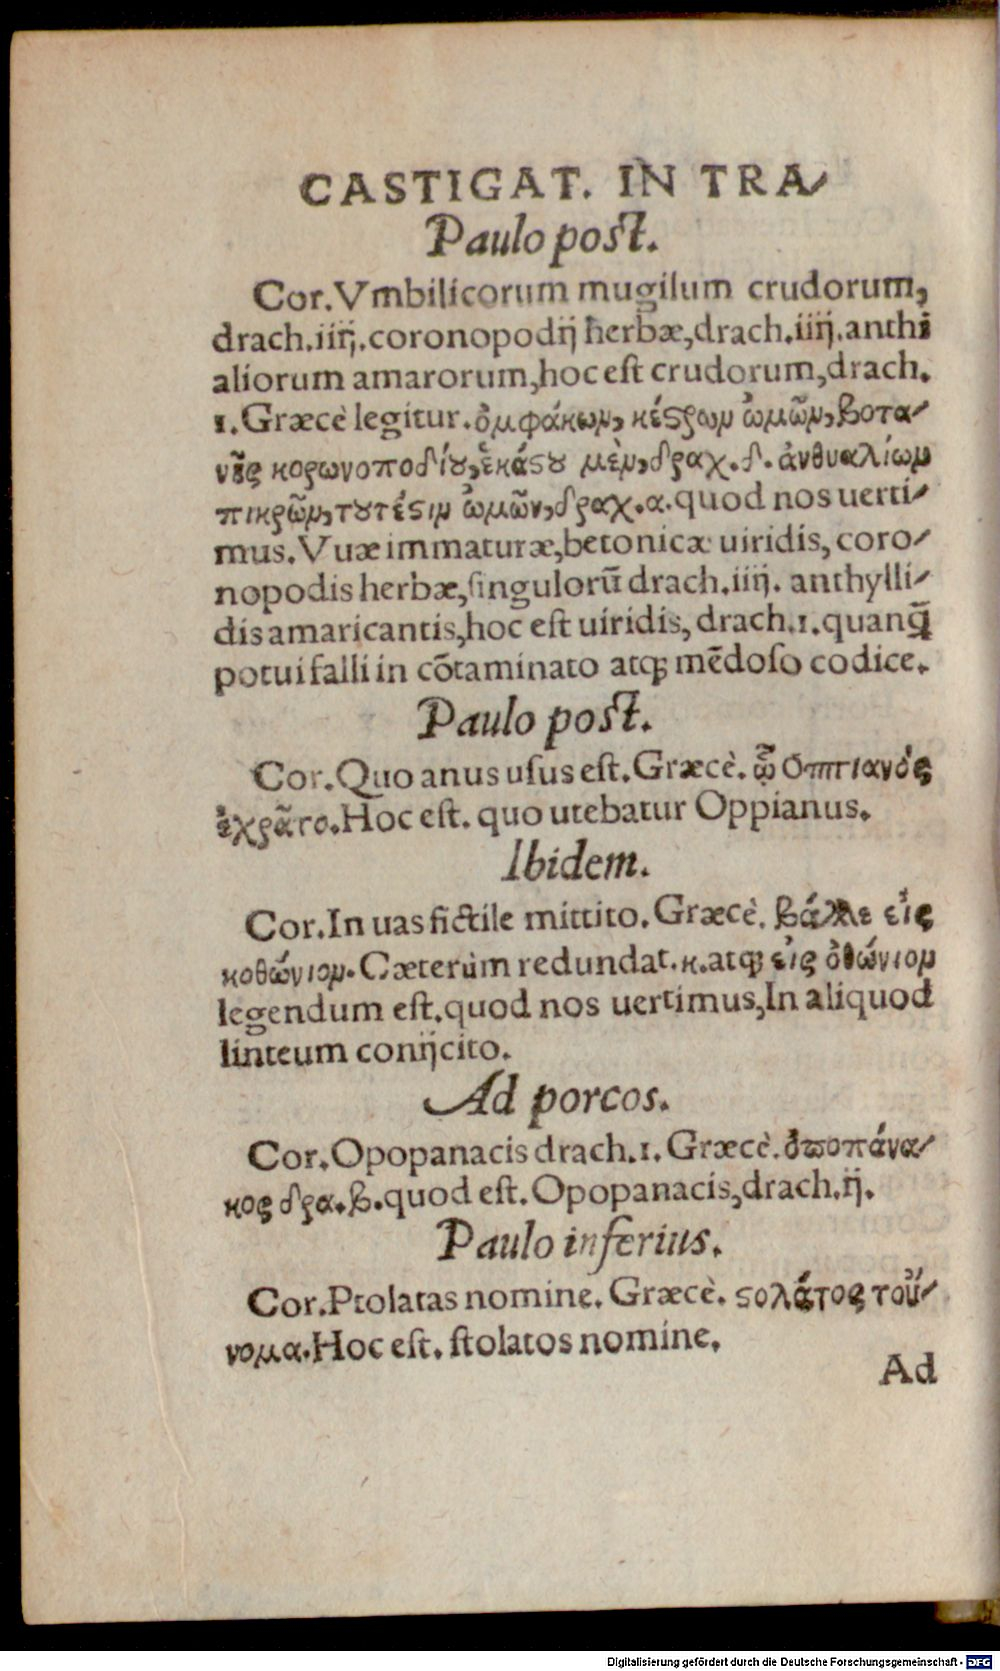 CASTIGAT. IN TRA-
Paulo post.
Cor. Vmbilicorum mugilum crudorum,
drach.iiij.coronopodij herbæ,drach.iiij.anthi
aliorum amarorum,hoc est crudorum,drach.
1.Græcè legitur.ὀμφάκων, κέστρων ὠμῶν, βοτα-
νῆς κορωνοποδίου, ἑκάστου μὲν, δραχ.δ. ἀνθυαλίων
πικρῶν, τουτέστιν ὠμῶν, δραχ.α.quod nos uerti-
mus.Vuæ immaturæ,betonicæ uiridis, coro-
nopodis herbæ,singulorū drach.iiij. anthylli-
dis amaricantis,hoc est uiridis, drach.1.quanq̄
potui falli in cōtaminato atq; mēdoso codice.
Paulo post.
Cor. Quo anus usus est. Græcè. ᾧ ὀππιανὸς
ἐχρᾶτο.Hoc est. quo utebatur Oppianus.
Ibidem.
Cor. In uas fictile mittito. Græcè. βάλλε εἰς
κοθώνιον. Cæterùm redundat.κ.atq; εἰς ὀθώνιον
legendum est.quod nos uertimus,In aliquod
linteum conijcito.
Ad porcos.
Cor. Opopanacis drach.1. Græcè. ὀποπάνα-
κος δρα.β.quod est. Opopanacis,drach.ij.
Paulo inferius.
Cor. Ptolatas nomine. Græcè. στολάτος τοὔ-
νομα.Hoc est. stolatos nomine.
Ad
Digitalisierung gefördert durch die Deutsche Forschungsgemeinschaft - DFG